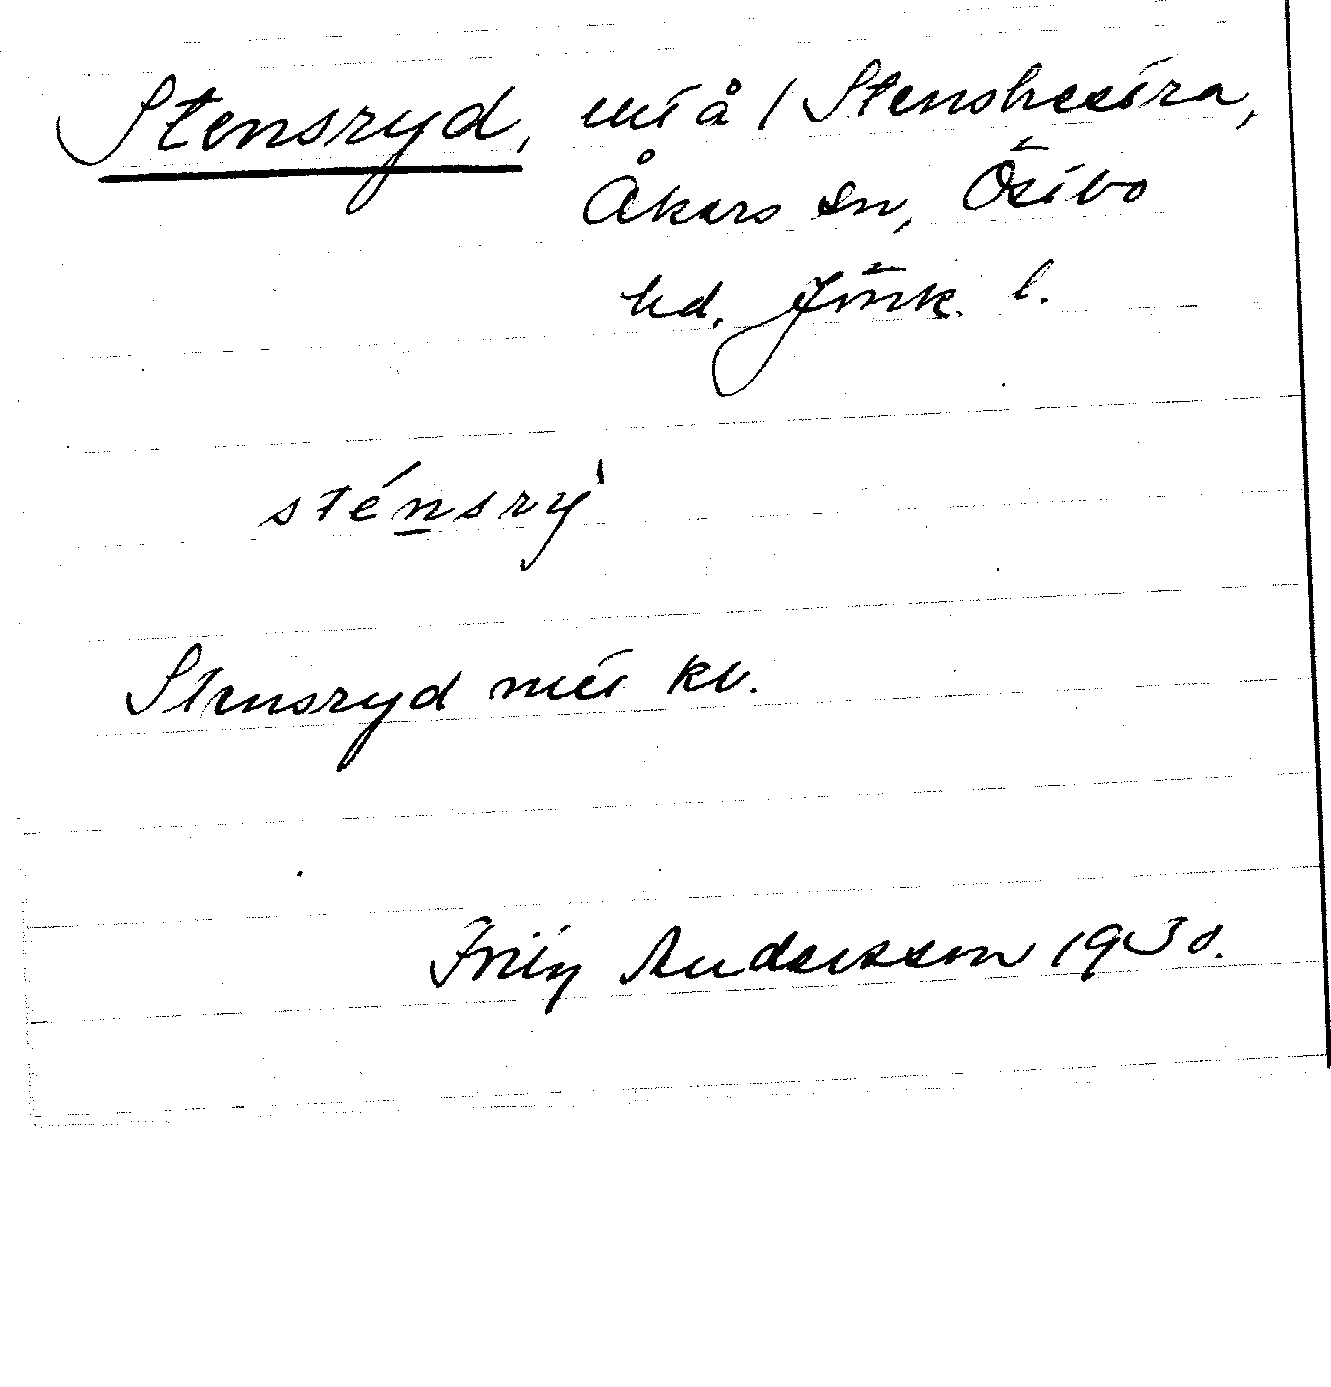 Stensryd, utå / Stenshestra,
Åkers sn, Östbo
hd. Jönk. l.
sténsrỳ
Stensryd mtl kv.
Fritz Andersson 1930.